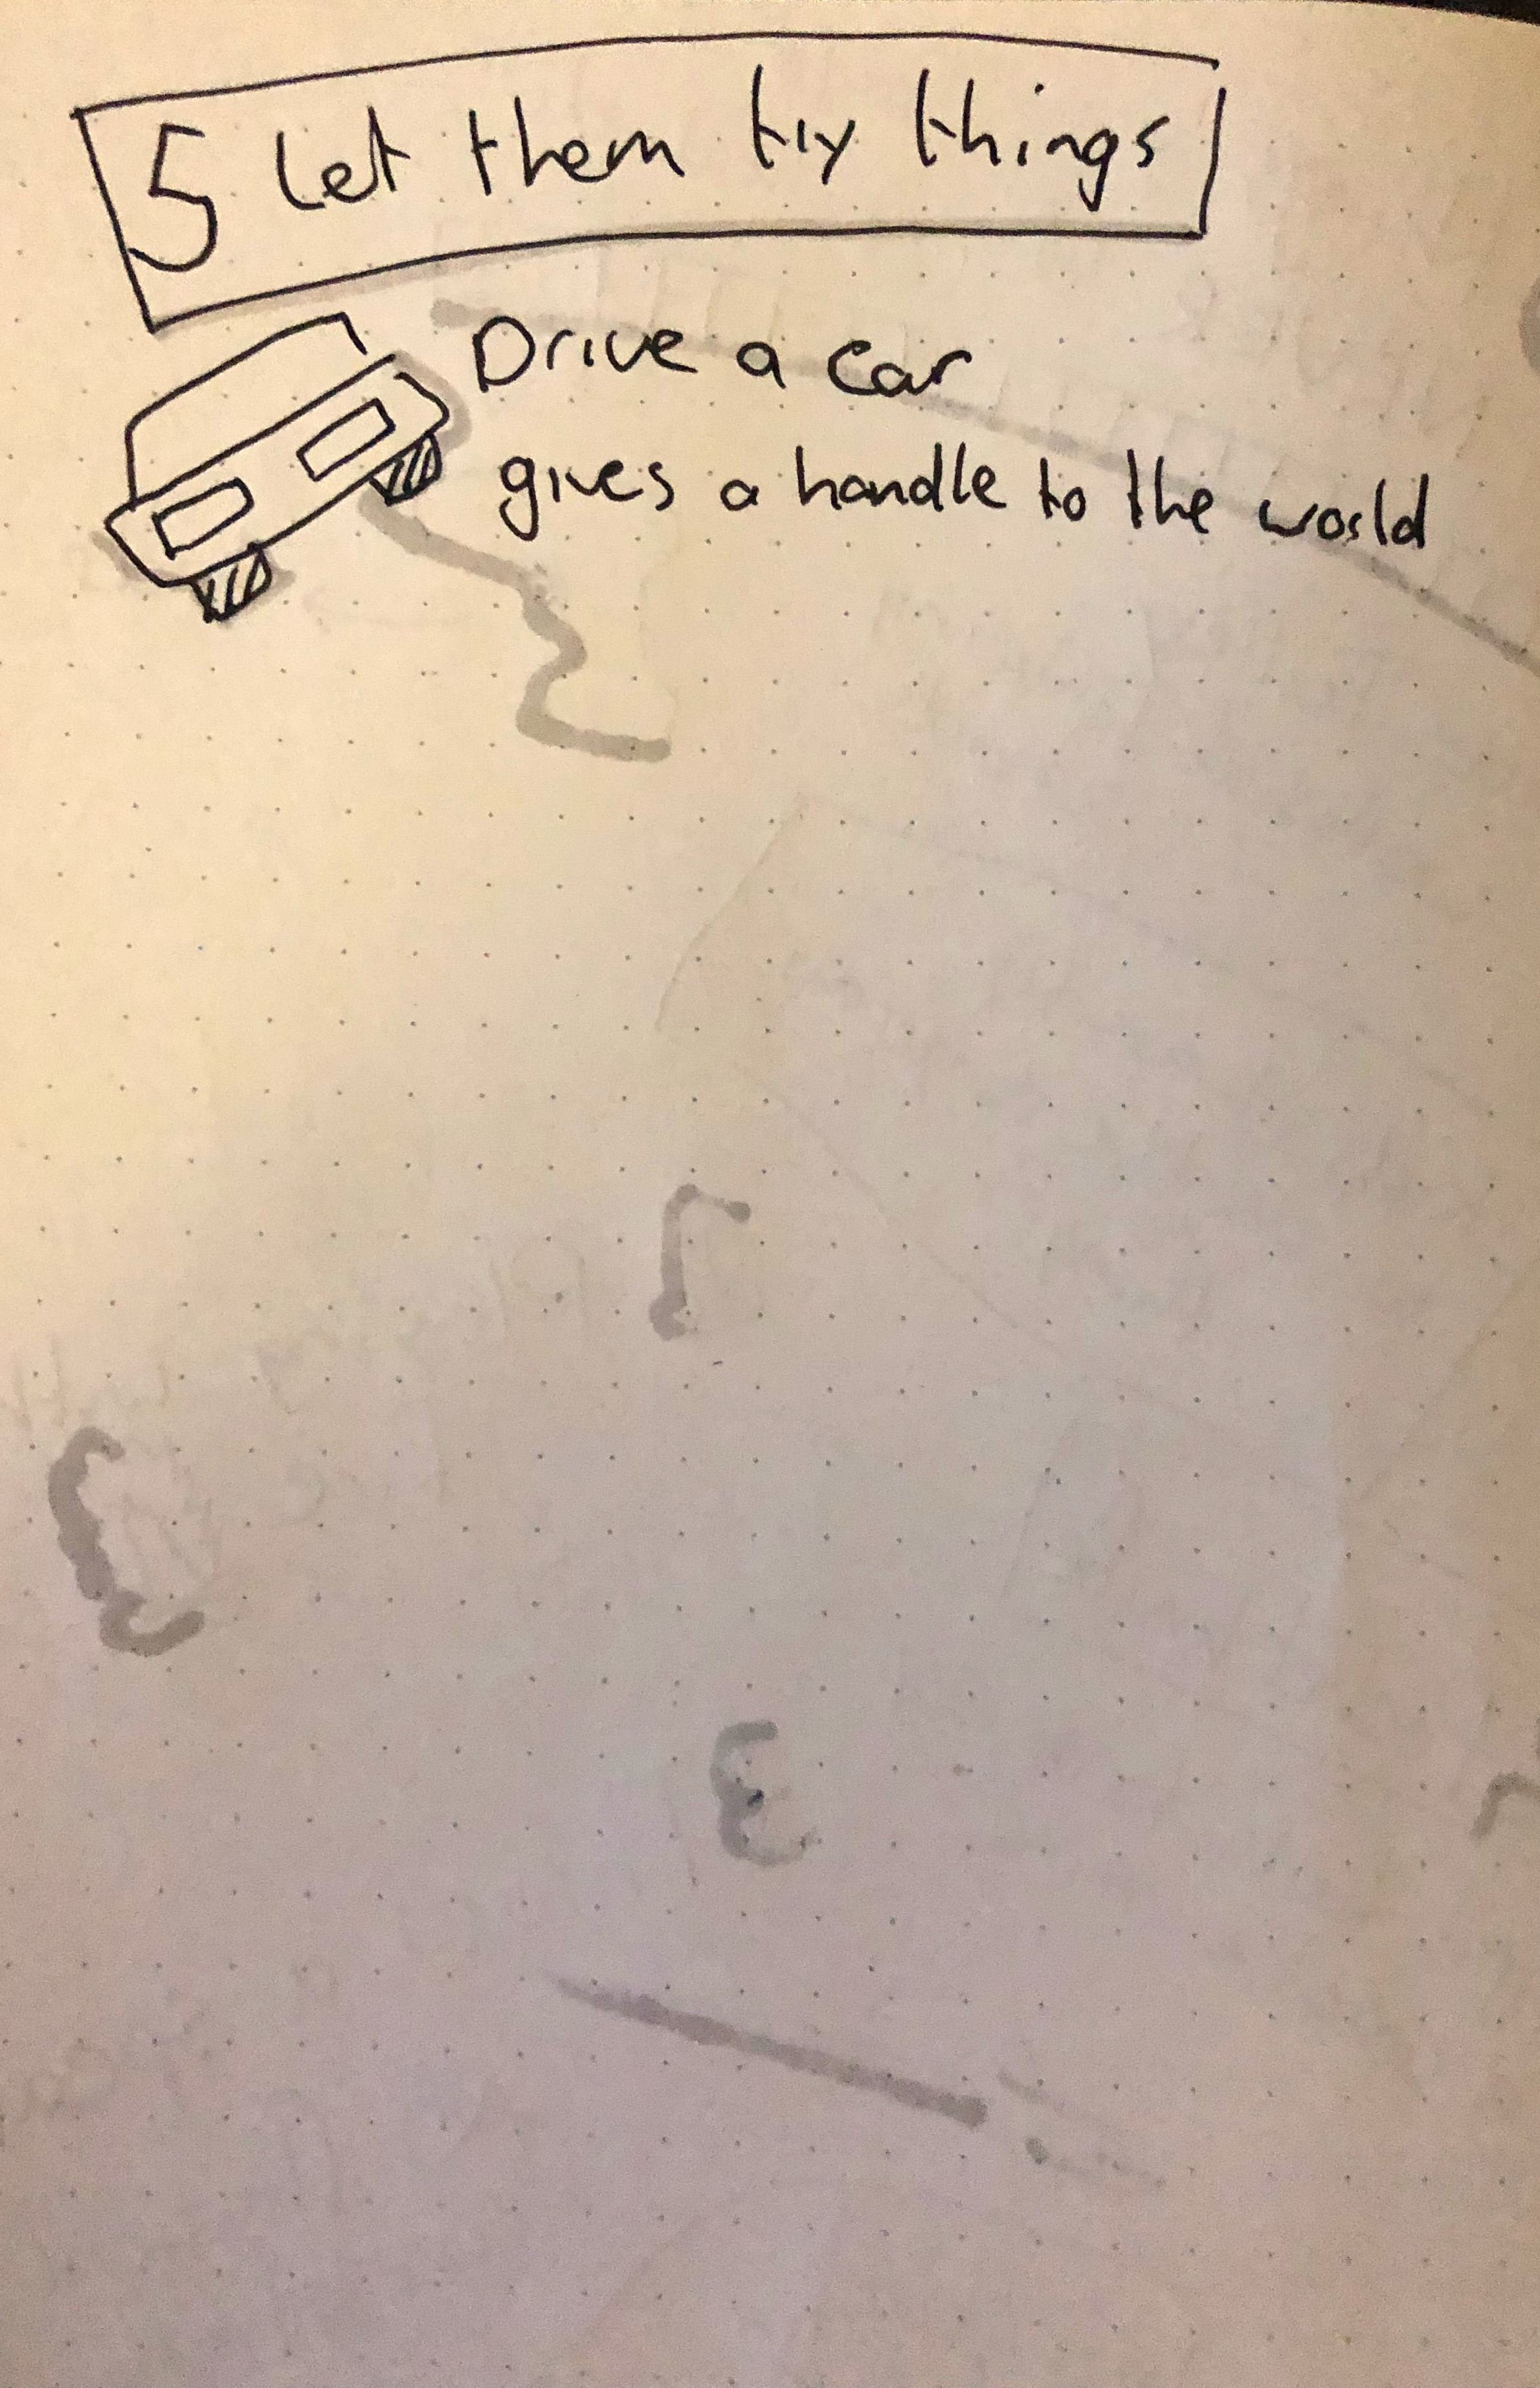 5 Let them try things
Drive a car
gives a handle to the world